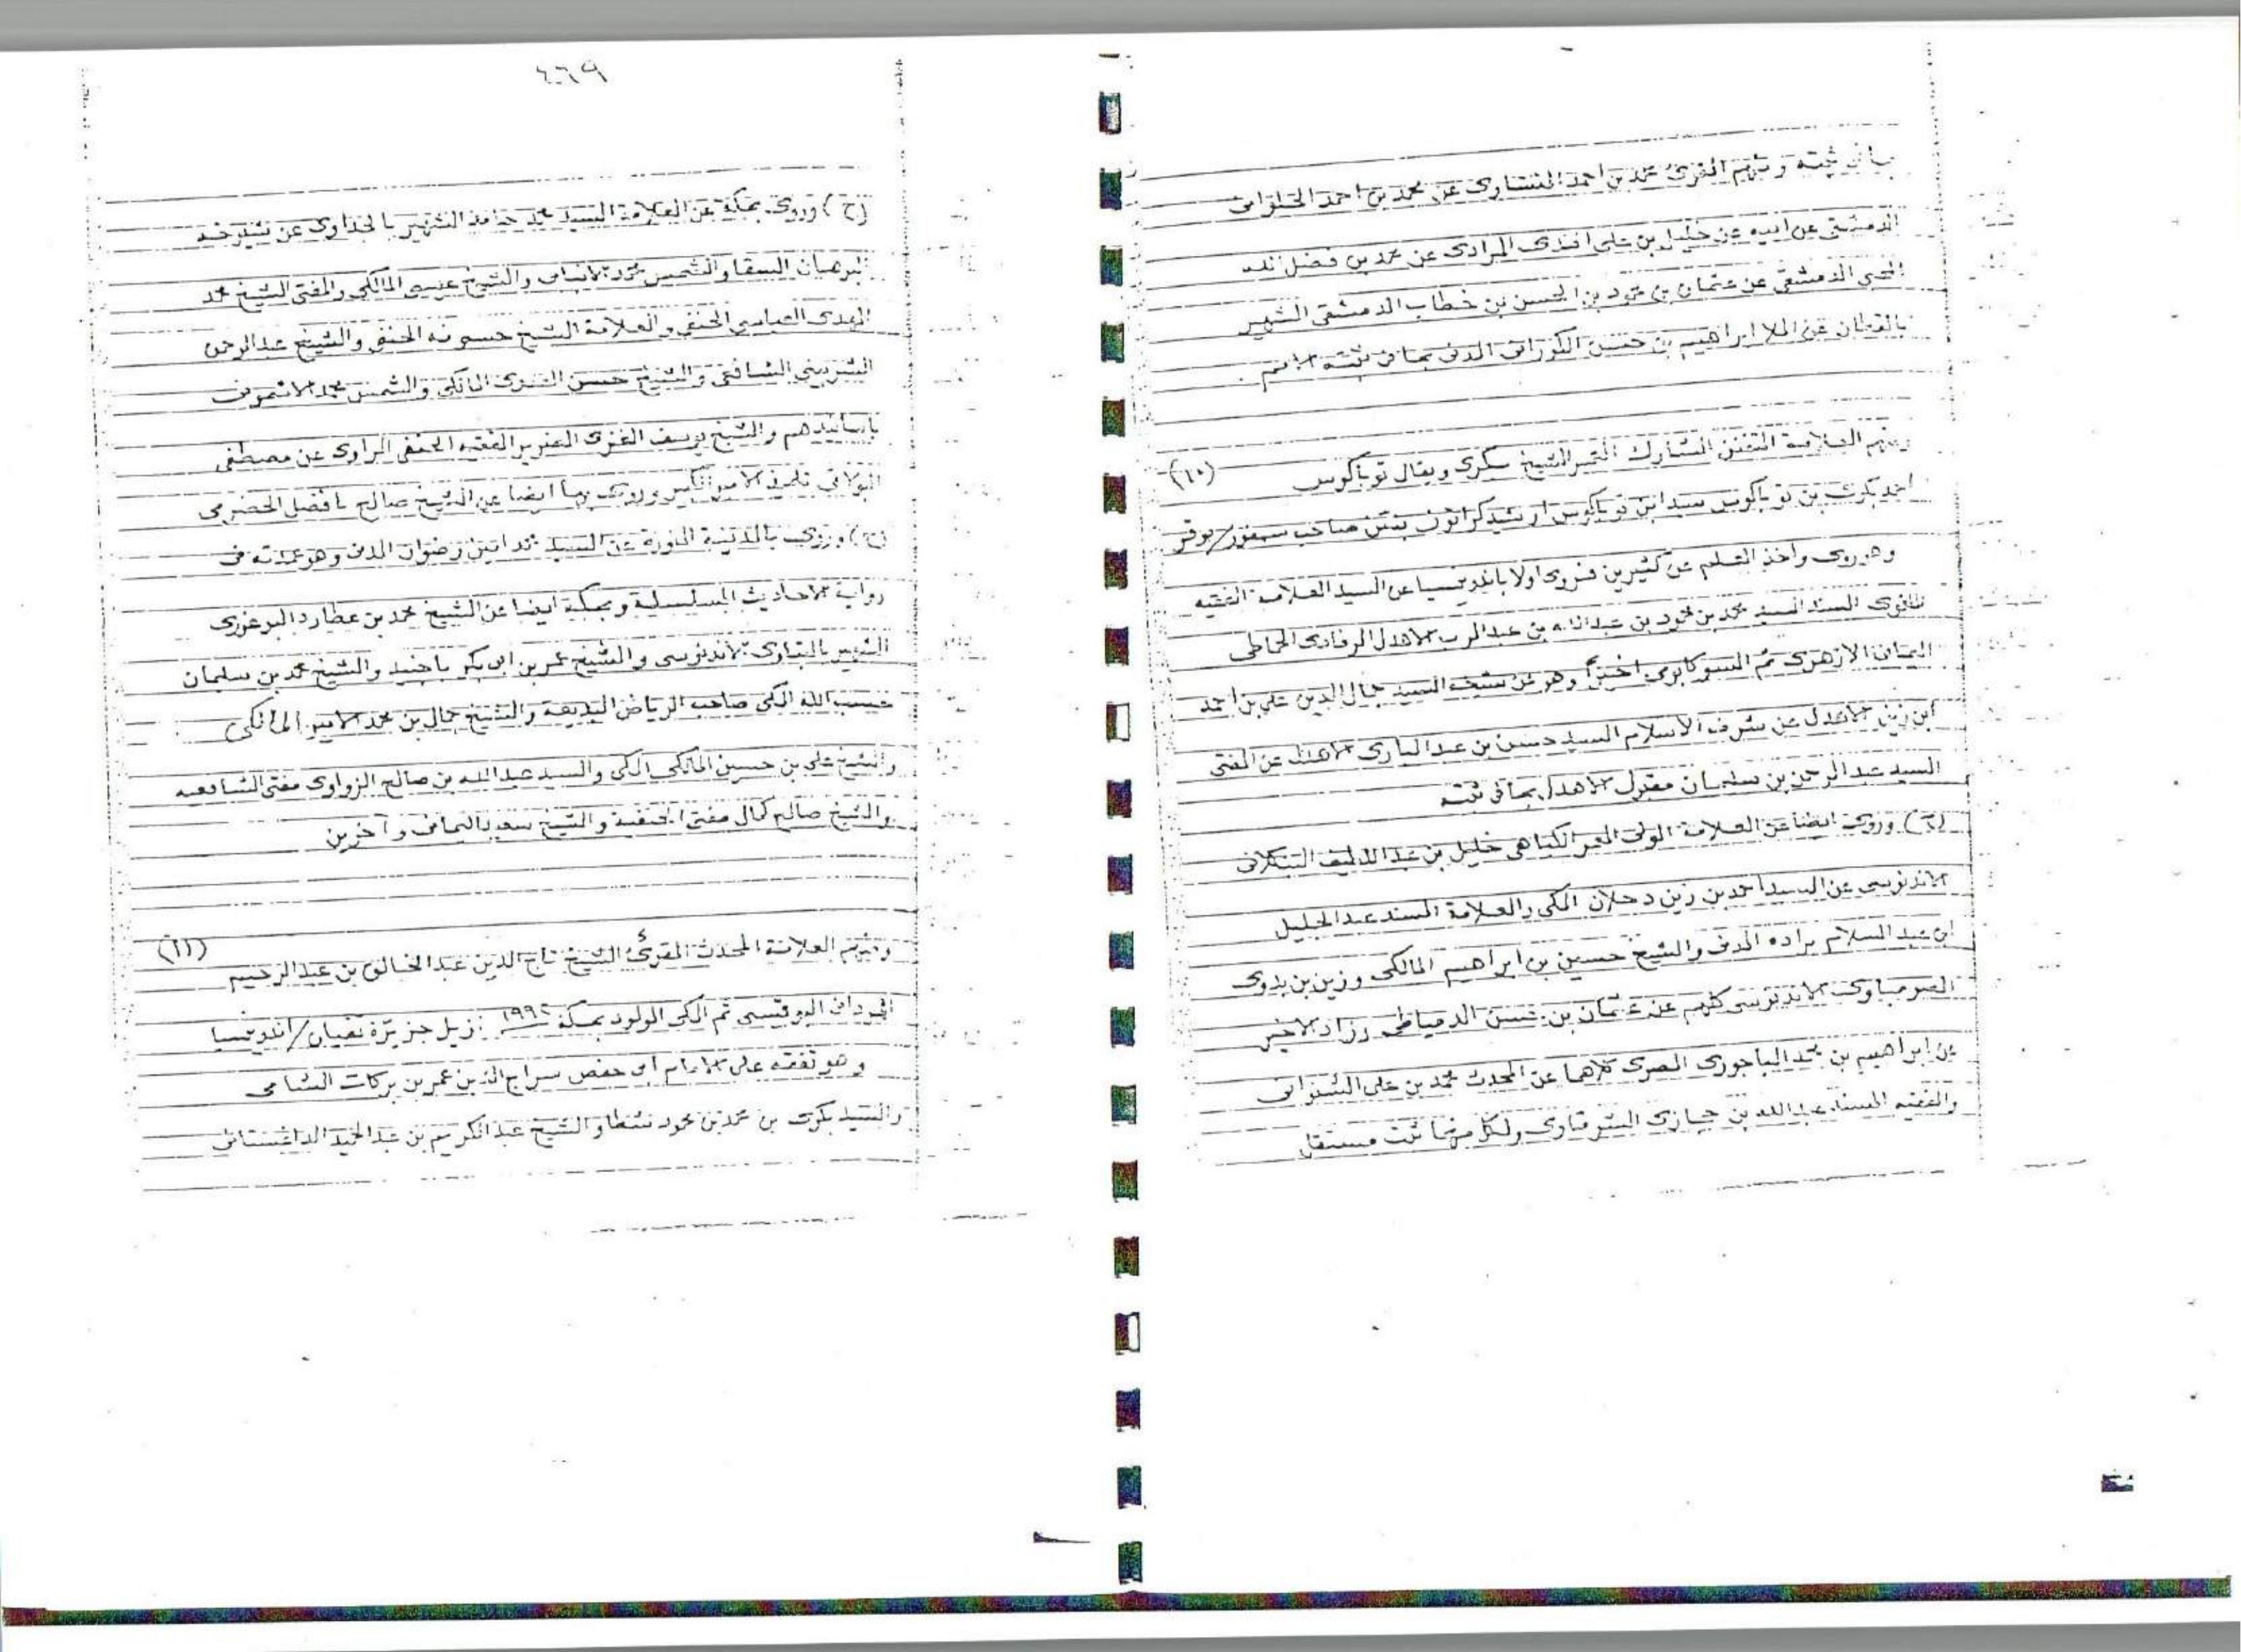 ومنهم المقرئ محمد بن احمد المنشاوى عن محمد بن احمد الحلوانى
الدمشقى عن ابيه عن خليل بن على افندى المرادى عن محمد بن فضل الله
المحبى الدمشقى عن عثمان بن محمود بن الحسن بن خطاب الدمشقى الشهير
بالقطان عن الملا ابراهيم بن حسن الكورانى المدنى بما فى ثبته الامم
(١٠)
ومنهم العلامة المتفنن المشارك المعمر الشيخ سكرى ويقال توباكوس
احمد بكرى بن توباكوس بن توباكوس صاحب
وهو روى واخذ العلم عن كثيرين فروى اولا باندونيسيا عن السيد العلامة الفقيه
اللغوى المسند السيد محمد بن محمود بن عبد الله بن عبد الرب الاهدل
اليمانى الازهرى ثم السوكابومى اخيرا وهو عن شيخه السيد جمال الدين على بن احمد
ابن زين الاهدل عن شرف الاسلام السيد حسن بن عبد البارى الاهدل عن المفتى
السيد عبد الرحمن بن سليمان مقبول الاهدل بما فى ثبته
وروى ايضا عن العلامة الولى المعمر الكياهى خليل بن عبد اللطيف البنكلانى
الاندنوسى عن السيد احمد بن زين دحلان المكى والعلامة المسند عبد الجليل
ابن عبد السلام براده المدنى والشيخ حسين بن ابراهيم المالكى وزين بن بدوى
الصومباوى الاندنوسى كلهم عن عثمان بن حسن الدمياطى وزاد الاخير
عن ابراهيم بن محمد الباجورى المصرى كلاهما عن المحدث محمد بن على الشنوانى
والفقيه المسند عبد الله بن حجازى الشرقاوى ولكل منهما ثبت مستقل
٤٦٩
(ح) وروى بمكة عن العلامة السيد محمد حامد الشهير بالجداوى عن
البرهان السقا والشمس محمد الانبابى والشيخ عيسى المالكى والمفتى الشيخ محمد
المهدى العباسى الحنفى والعلامة الشيخ حسونه الحنفى والشيخ عبد الرحمن
الشربينى الشافعى والشيخ حسن العدوى المالكى والشمس محمد الاشمونى
باسانيدهم والشيخ يوسف الغزى الضرير الفقيه الحنفى الراوى عن مصطفى
البولاقى تلميذ الامير الكبير وروى بها ايضا عن الشيخ صالح بافضل الحضرمى
(ح) وروى بالمدينة المنورة عن السيد محمد امين رضوان المدنى وهو عمدته فى
رواية الاحاديث المسلسلة وبمكة ايضا عن الشيخ محمد بن عطارد البوغورى
الشهير بالجاوى الاندنوسى والشيخ عمر بن ابى بكر باجنيد والشيخ محمد بن سليمان
حسب الله المكى صاحب الرياض البديعة والشيخ جمال بن محمد الامير المالكى
والشيخ على بن حسين المالكى المكى والسيد عبد الله بن صالح الزواوى مفتى الشافعيه
والشيخ صالح كمال مفتى الحنفية والشيخ سعيد اليمانى وآخرين
(١١)
ومنهم العلامة المحدث المقرئ الشيخ تاج الدين عبد الخالق بن عبد الرحيم
ثم المكى المولود بمكة نزيل جزيرة / اندونيسيا
وهو تفقه على الامام ابى حفص سراج الدين عمر بن بركات الشامى
والسيد بكرى بن محمد بن محمود شطا والشيخ عبد الكريم بن عبد الحميد الداغستانى